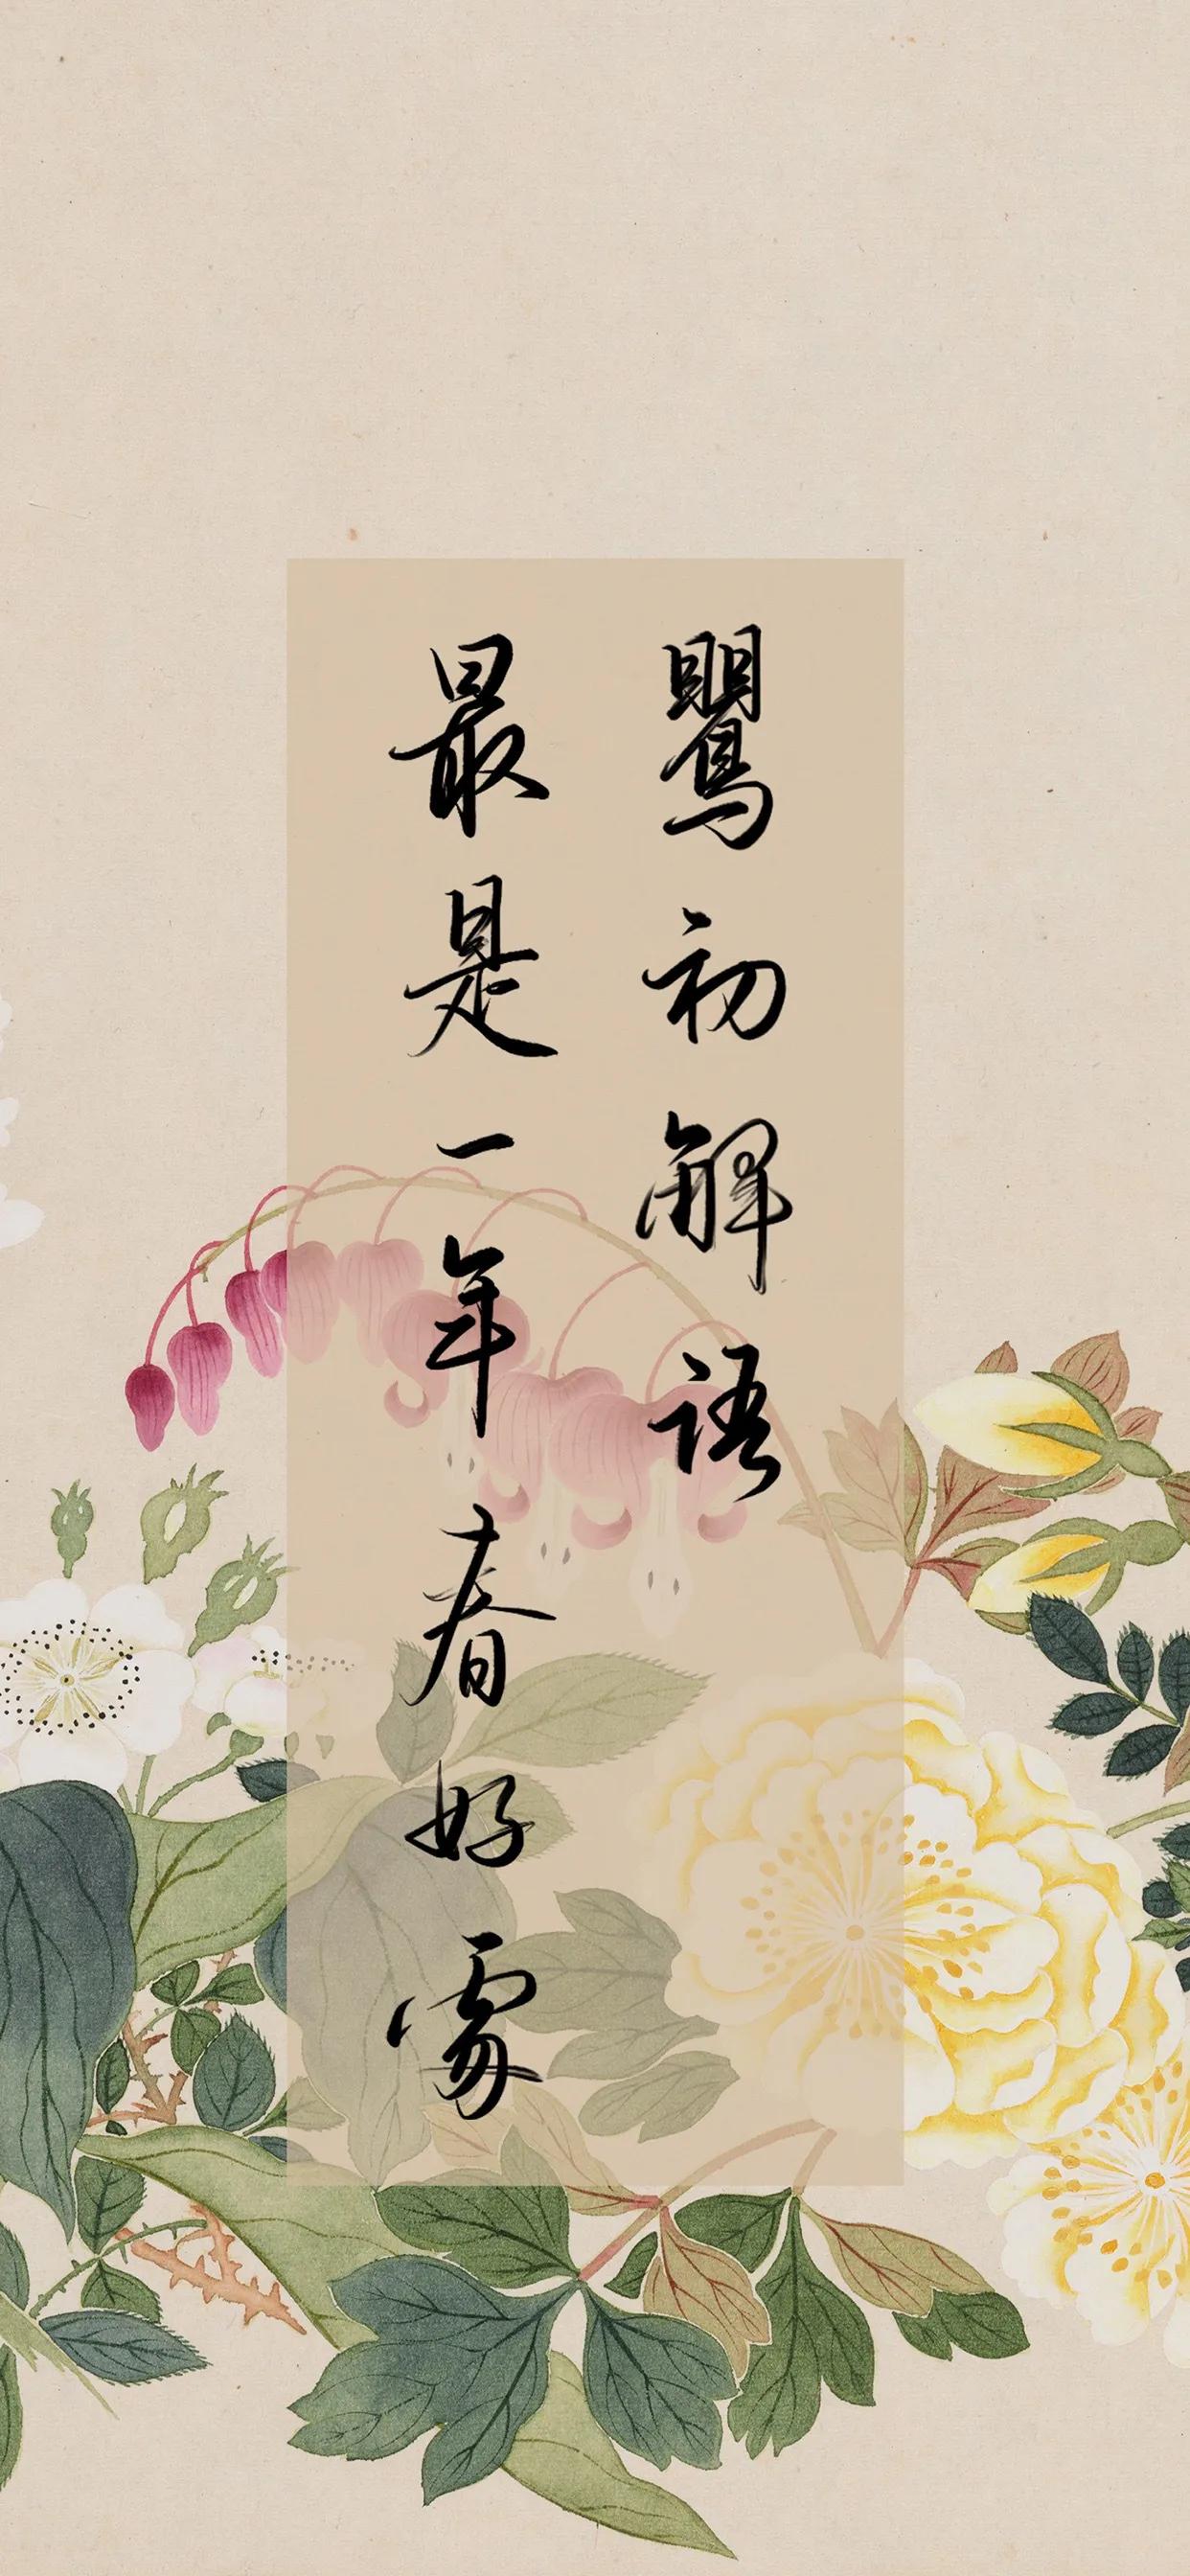 鸎初解語
最是一年春好處